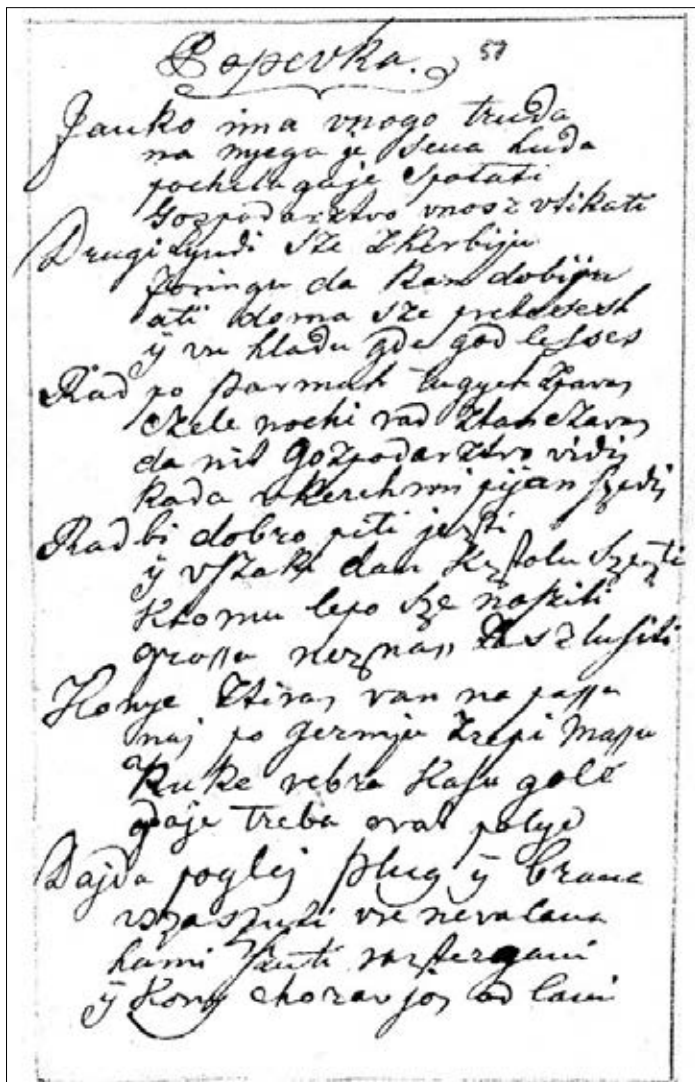 Popevka. 57
Janko ima vnogo truda
na njega je sena huda
pochela ga je Spotati
Gozpodarztvo vnosz vtikati
Drugi Lyudi Sze Zkerbiju
da kam dobiju
ati doma sze
ÿ vu hladu gde god
Rad po Parmah tugyeh
Czele nochi rad
da nit Gozpodarztvo vidis
Kada vkerchmi pijan Szedis
Rad bi dobro piti jezti
ÿ vszaki dan kztolu Szezti
Ktomu lepo Sze nosziti
grossa neznass Zaszlusiti
Konye van na passu
naj po germju Zrepi Massu
Kuke rebra Kasu gole
gdaje treba orat polye
Dajda poglej Plug ÿ brana
vre nevalana
hami Skuti razstergani
ÿ Kony od lani